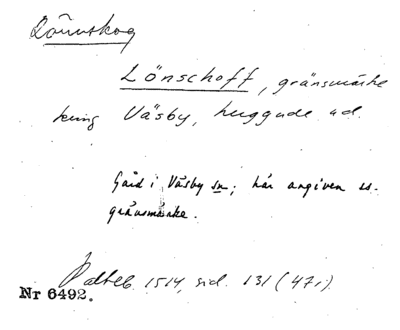 Rönnskog
Lönschoff, gränsmärke
kring Väsby, huggude ad.
Gård i Väsby sn; här angiven ss.
gränsmärke.
Jdteb. 1514, sid. 131 (47r)
Nr 6492.